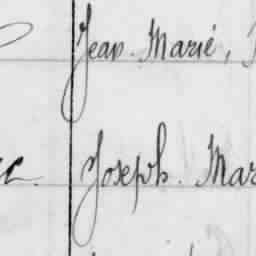 Jean Marié,
Joseph. Mar